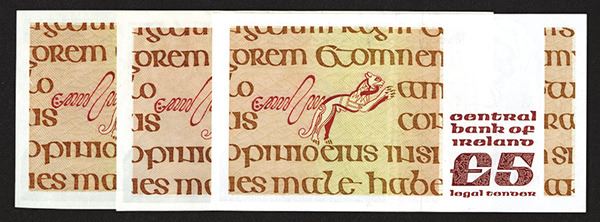 orem
o
us
opini
ies ma
orem
o
us
opini
ies ma
orem Etomnen
o
us
opinioeius insi
ies male habe
central
bank of
ireland
£5
legal tender